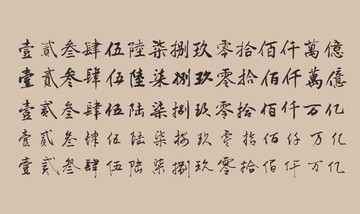 壹貳叁肆伍陸柒捌玖零拾佰仟萬億
壹貳叁肆伍陸柒捌玖零拾佰仟萬億
壹贰叁肆伍陆柒捌玖零拾佰仟万亿
壹贰叁肆伍陆柒捌玖零拾佰仟万亿
壹贰叁肆伍陆柒捌玖零拾佰仟万亿